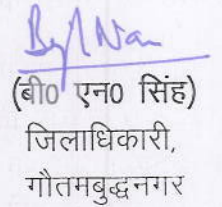 (बी0 एन0 सिंह)
जिलाधिकारी,
गौतमबुद्धनगर